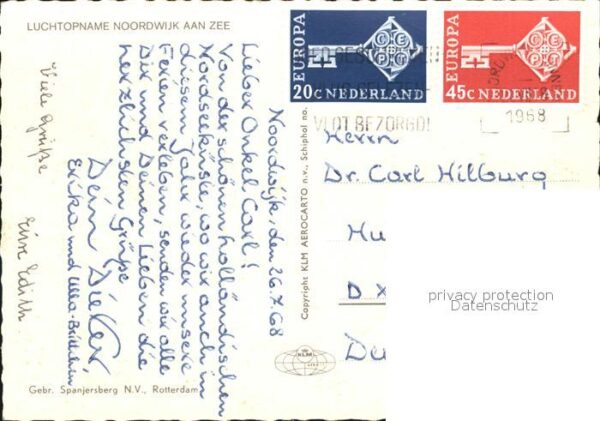 LUCHTOPNAME NOORDWIJK AAN ZEE
EUROPA
CEPT
20c NEDERLAND
EUROPA
CEPT
45c NEDERLAND
VLOT BEZORGD!
1968
Noordwijk, den 26.7.68
Lieber Onkel Carl!
Von der schönen holländischen
Nordseeküste, wo wir auch in
diesem Jahr wieder unsere
Ferien verleben, senden wir alle
Dir und Deinen Lieben die
herzlichsten Grüße
Dein Dieter,
Erika und Ulla-
Viele Grüße
Eure Edith
Copyright KLM AEROCARTO n.v., Schiphol no.
KLM
Herrn
Dr. Carl Hilburg
Hu
D
Du
privacy protection
Datenschutz
Gebr. Spanjersberg N.V., Rotterdam